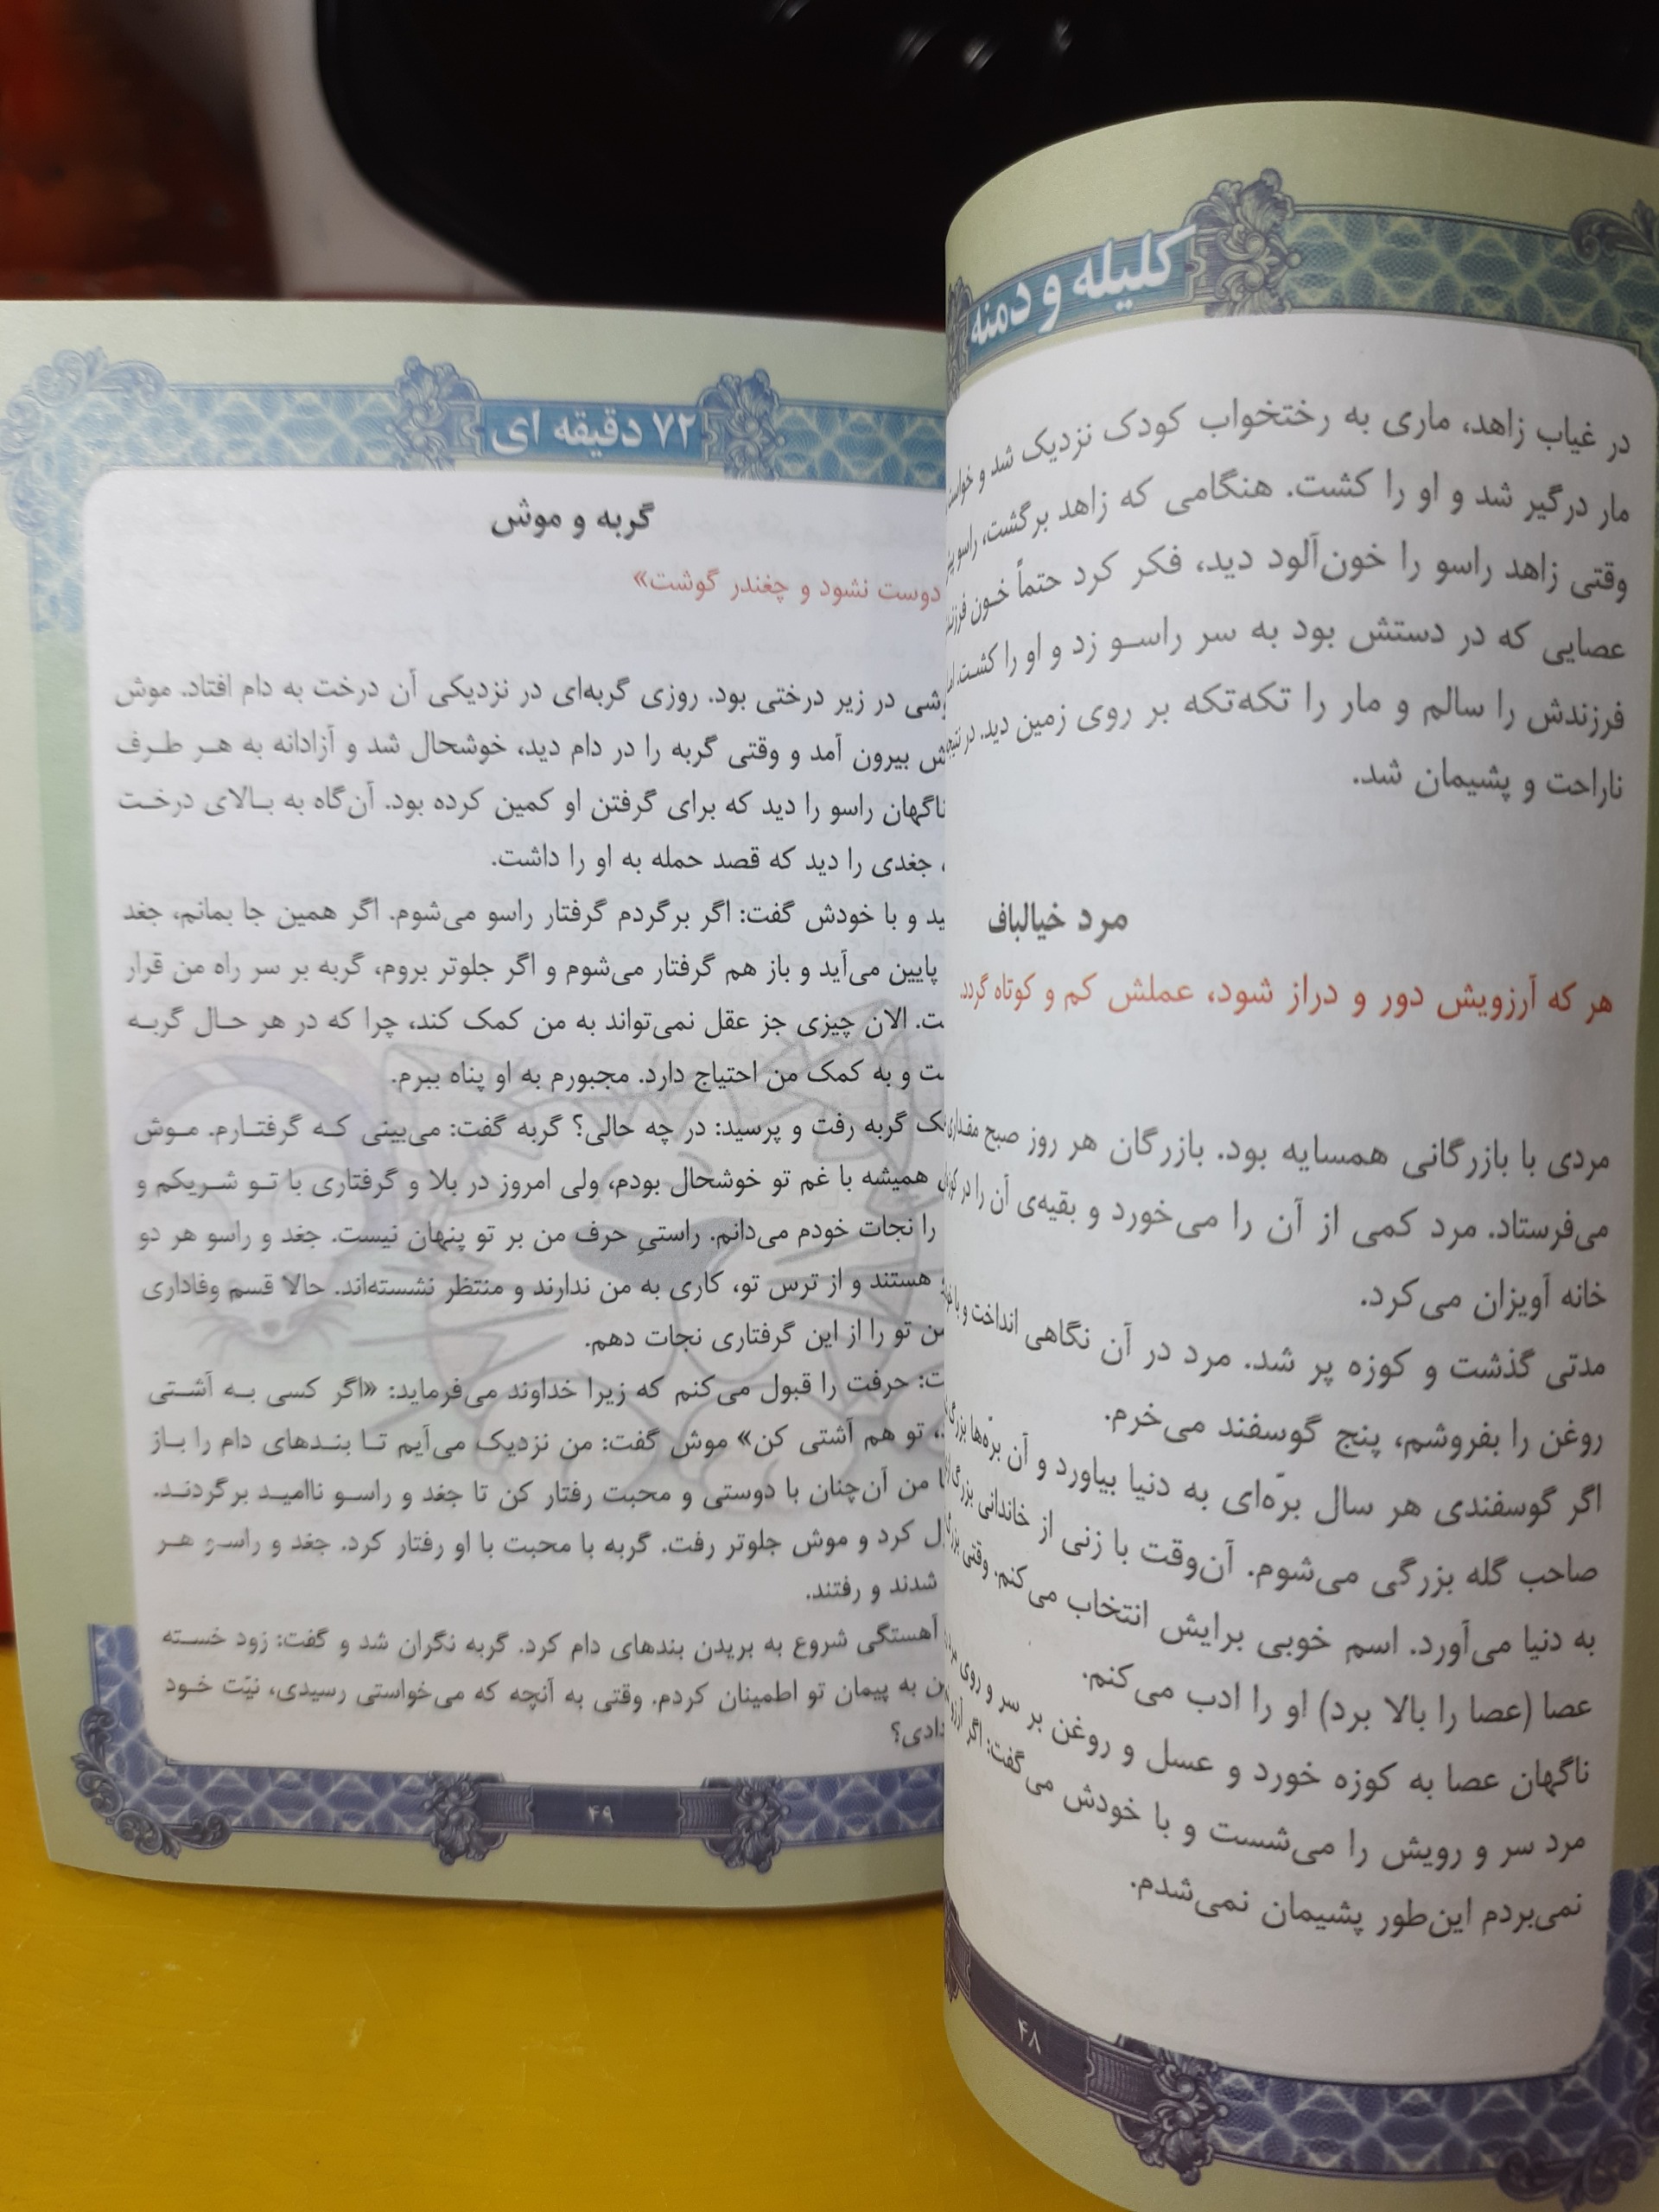 کلیله و دمنه
در غیاب زاهد، ماری به رختخواب کودک نزدیک شد و
مار درگیر شد و او را کشت. هنگامی که زاهد برگشت، راسو
وقتی زاهد راسو را خون‌آلود دید، فکر کرد حتماً خون
عصایی که در دستش بود به سر راسو زد و او را کشت.
فرزندش را سالم و مار را تکه‌تکه بر روی زمین دید. در
ناراحت و پشیمان شد.
مرد خیالباف
هر که آرزویش دور و دراز شود، عملش کم و کوتاه گردد.
مردی با بازرگانی همسایه بود. بازرگان هر روز صبح مقداری
می‌فرستاد. مرد کمی از آن را می‌خورد و بقیه‌ی آن را در
خانه آویزان می‌کرد.
مدتی گذشت و کوزه پر شد. مرد در آن نگاهی انداخت و با
روغن را بفروشم، پنج گوسفند می‌خرم.
اگر گوسفندی هر سال برّه‌ای به دنیا بیاورد و آن برّه‌ها
صاحب گله بزرگی می‌شوم. آن‌وقت با زنی از خاندانی بزرگ
به دنیا می‌آورد. اسم خوبی برایش انتخاب می‌کنم. وقتی
عصا (عصا را بالا برد) او را ادب می‌کنم.
ناگهان عصا به کوزه خورد و عسل و روغن بر سر و روی
مرد سر و رویش را می‌شست و با خودش می‌گفت: اگر
نمی‌بردم این‌طور پشیمان نمی‌شدم.
۴۸
۷۲ دقیقه ای
گربه و موش
دوست نشود و چغندر گوشت»
در زیر درختی بود. روزی گربه‌ای در نزدیکی آن درخت به دام افتاد. موش
بیرون آمد و وقتی گربه را در دام دید، خوشحال شد و آزادانه به هر طرف
ناگهان راسو را دید که برای گرفتن او کمین کرده بود. آن‌گاه به بالای درخت
جغدی را دید که قصد حمله به او را داشت.
و با خودش گفت: اگر برگردم گرفتار راسو می‌شوم. اگر همین جا بمانم، جغد
پایین می‌آید و باز هم گرفتار می‌شوم و اگر جلوتر بروم، گربه بر سر راه من قرار
الان چیزی جز عقل نمی‌تواند به من کمک کند، چرا که در هر حال گربه
و به کمک من احتیاج دارد. مجبورم به او پناه ببرم.
گربه رفت و پرسید: در چه حالی؟ گربه گفت: می‌بینی که گرفتارم. موش
همیشه با غم تو خوشحال بودم، ولی امروز در بلا و گرفتاری با تو شریکم و
را نجات خودم می‌دانم. راستیِ حرف من بر تو پنهان نیست. جغد و راسو هر دو
هستند و از ترس تو، کاری به من ندارند و منتظر نشسته‌اند. حالا قسم وفاداری
تو را از این گرفتاری نجات دهم.
حرفت را قبول می‌کنم که زیرا خداوند می‌فرماید: «اگر کسی به آشتی
تو هم آشتی کن» موش گفت: من نزدیک می‌آیم تا بندهای دام را باز
من آن‌چنان با دوستی و محبت رفتار کن تا جغد و راسو ناامید برگردند.
کرد و موش جلوتر رفت. گربه با محبت با او رفتار کرد. جغد و راسو هر
شدند و رفتند.
آهستگی شروع به بریدن بندهای دام کرد. گربه نگران شد و گفت: زود خسته
به پیمان تو اطمینان کردم. وقتی به آنچه که می‌خواستی رسیدی، نیّت خود
۴۹